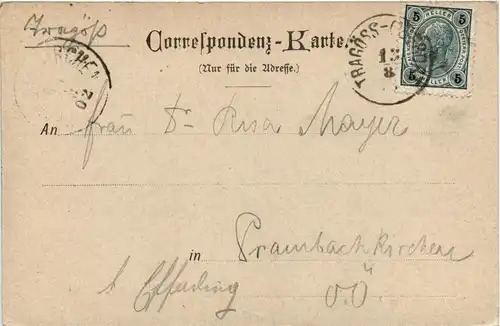 Tragöß
Correspondenz-Karte.
(Nur für die Adresse.)
TRAGÖSS-
13
8
02
5 HELLER 5
5 5
An Frau Dr Resa Mayer
in Prambachkirchen
b Efferding O.Ö.